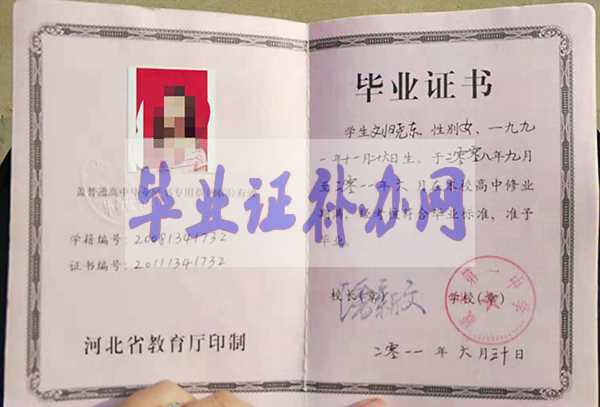 毕业证书
学生刘旧尧东、性别女、一九九
一年十一月二十六日生，于二零零八年九月
至二零一一年六月在本校高中修业
期满，经考核符合毕业标准，准予
毕业。
盖普通高中毕业
专用章
有效
学籍编号：20081341732
证书编号：20111341732
毕业证补办网
校长(章)
学校(章)
第一中学
河北省教育厅印制
二零一一年六月三十日